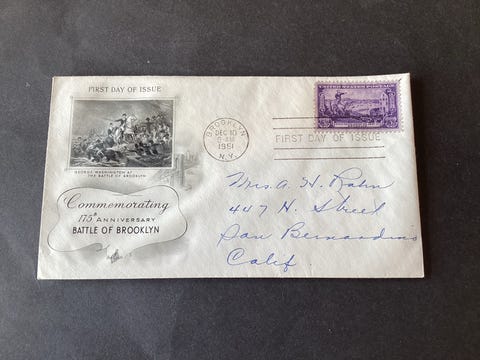 FIRST DAY OF ISSUE
GEORGE WASHINGTON AT
THE BATTLE OF BROOKLYN
Commemorating
175th ANNIVERSARY
BATTLE OF BROOKLYN
BROOKLYN
DEC 10
9-AM
1951
N.Y.
UNITED STATES POSTAGE
FIRST DAY OF ISSUE
Mrs. A. H. Rahn
447 H. Street
San Bernardino
Calif.